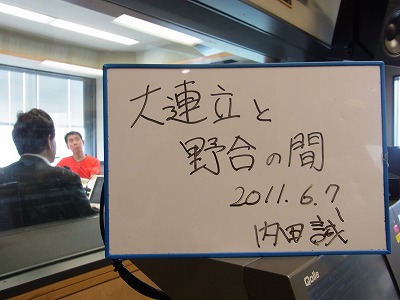 大連立と
野合の間
2011.6.7
内田誠
Qolle